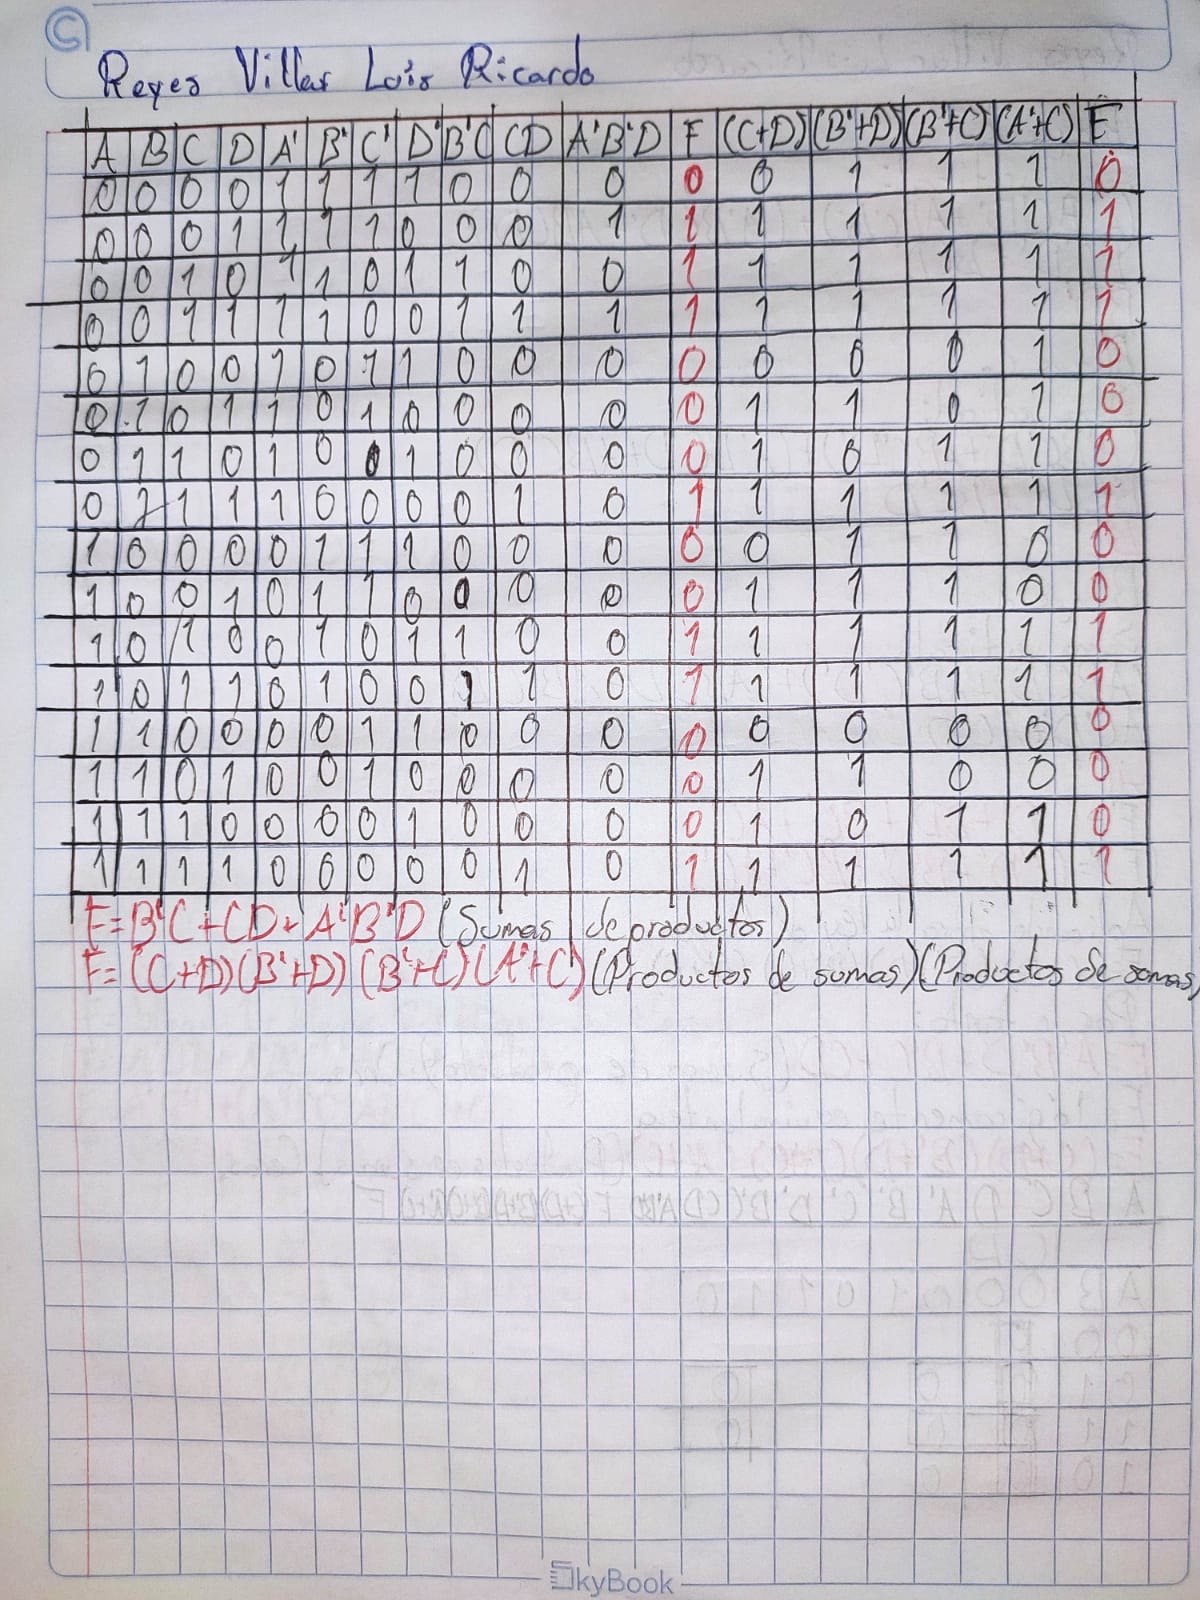 Reyes Villar Luis Ricardo
A B C D A' B' C' D' B'C CD A'B'D F (C+D) (B'+D) (B'+C) (A'+C) F
0 0 0 0 1 1 1 1 0 0 0 0 0 1 1 1 0
0 0 0 1 1 1 1 0 0 0 1 1 1 1 1 1 1
0 0 1 0 1 1 0 1 1 0 0 1 1 1 1 1 1
0 0 1 1 1 1 0 0 1 1 1 1 1 1 1 1 1
0 1 0 0 1 0 1 1 0 0 0 0 0 0 0 1 0
0 1 0 1 1 0 1 0 0 0 0 0 1 1 0 1 0
0 1 1 0 1 0 0 1 0 0 0 0 1 0 1 1 0
0 1 1 1 1 0 0 0 0 1 0 1 1 1 1 1 1
1 0 0 0 0 1 1 1 0 0 0 0 0 1 1 0 0
1 0 0 1 0 1 1 0 0 0 0 0 1 1 1 0 0
1 0 1 0 0 1 0 1 1 0 0 1 1 1 1 1 1
1 0 1 1 0 1 0 0 1 1 0 1 1 1 1 1 1
1 1 0 0 0 0 1 1 0 0 0 0 0 0 0 0 0
1 1 0 1 0 0 1 0 0 0 0 0 1 1 0 0 0
1 1 1 0 0 0 0 1 0 0 0 0 1 0 1 1 0
1 1 1 1 0 0 0 0 0 1 0 1 1 1 1 1 1
F=B'C+CD+A'B'D (Sumas de productos)
F=(C+D)(B'+D)(B'+C)(A'+C)(Productos de sumas)(Productos de somas)
SkyBook